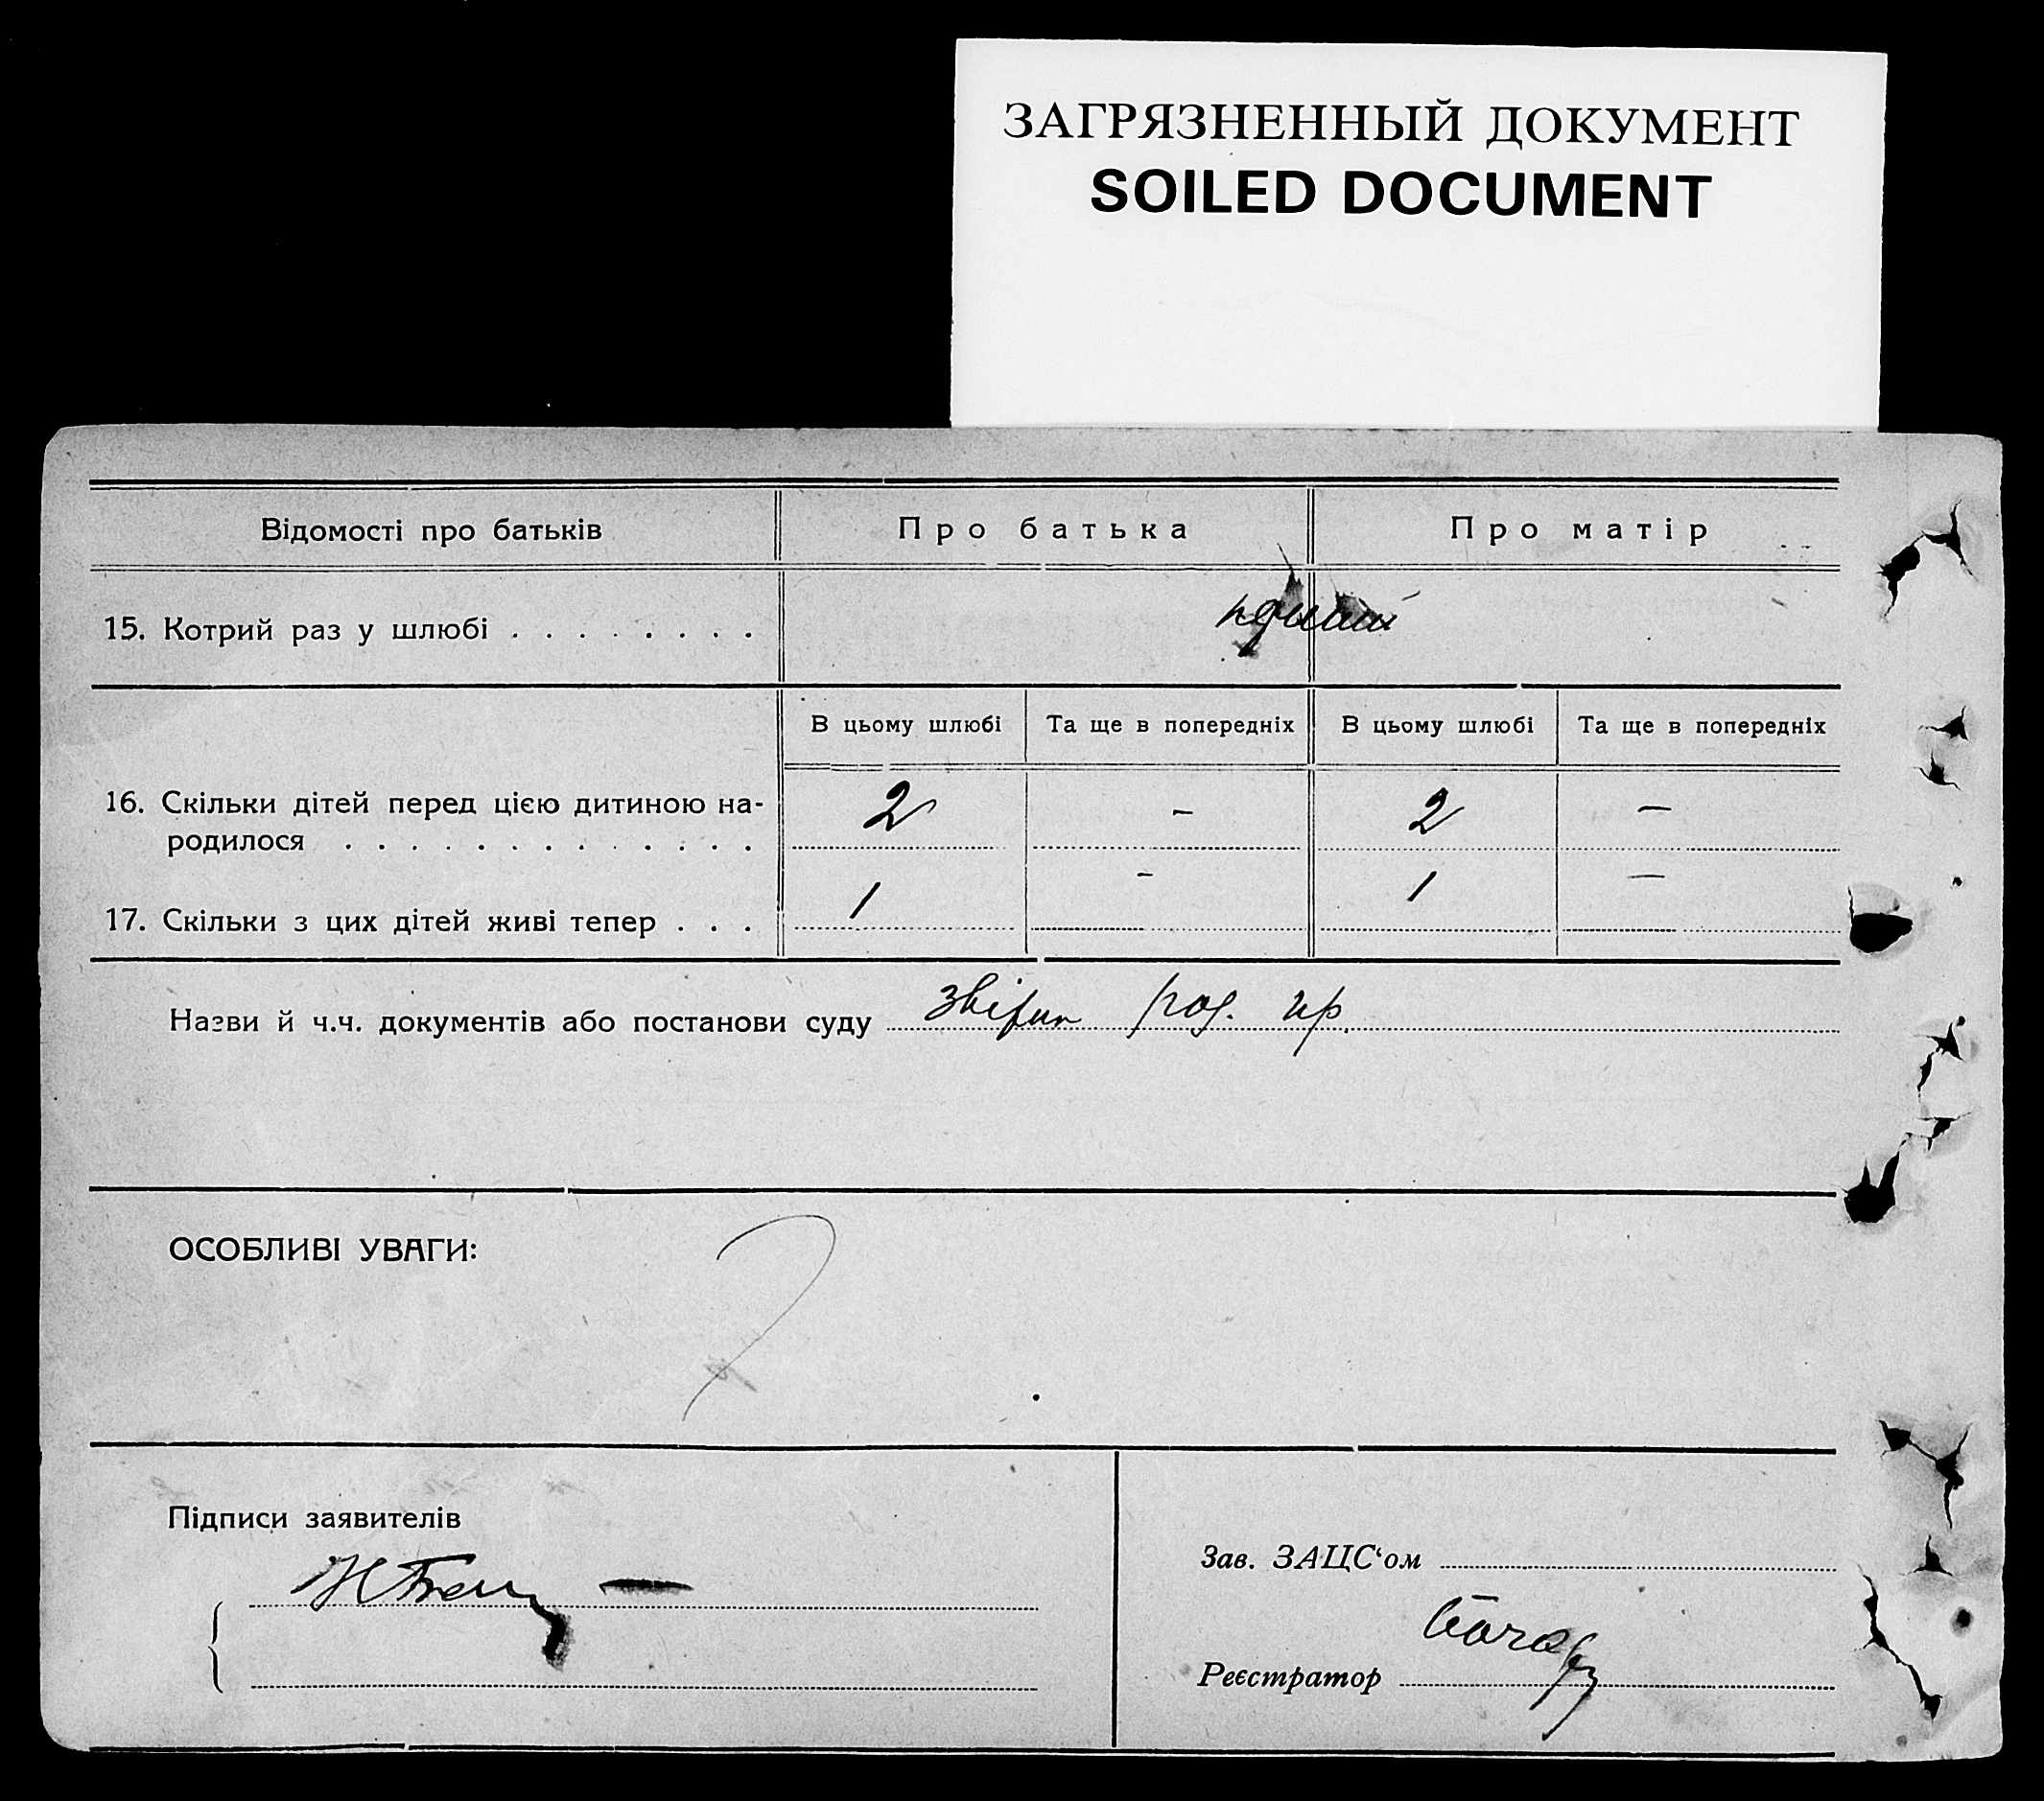 ЗАГРЯЗНЕННЫЙ ДОКУМЕНТ
SOILED DOCUMENT
Відомості про батьків Про батька Про матір
15. Котрий раз у шлюбі . . . . . . . .
В цьому шлюбі Та ще в попередніх В цьому шлюбі Та ще в попередніх
16. Скільки дітей перед цією дитиною на- 2 – 2 –
родилося . . . . . . . . . . . . .
17. Скільки з цих дітей живі тепер . . . 1 – 1 –
Назви й ч.ч. документів або постанови суду
ОСОБЛИВІ УВАГИ:
Підписи заявителів
Зав. ЗАЦС‘ом
Реєстратор